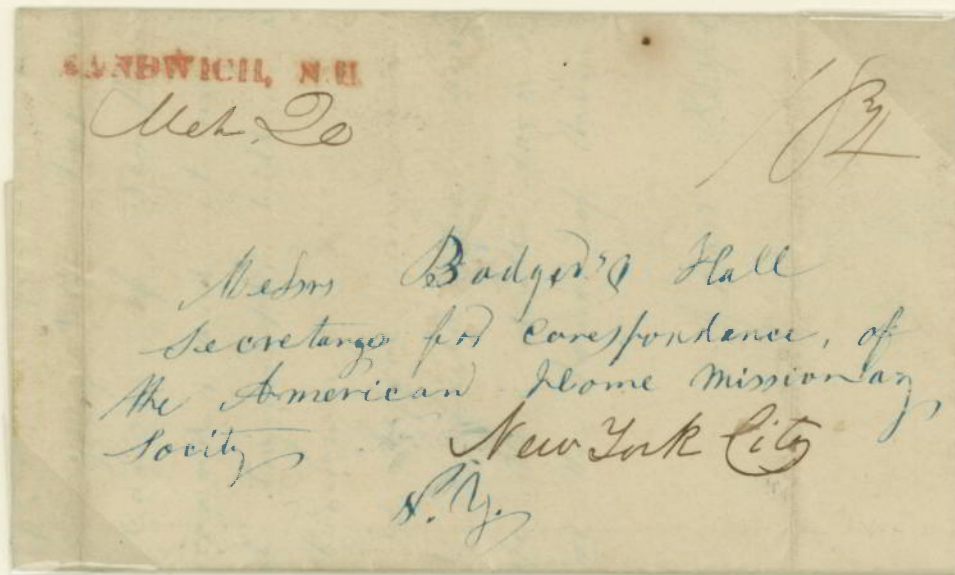 SANDWICH, N.H
Mch. 20
18¾
Messrs Badger & Hall
Secretarys for Corespondance, of
the American Home Missionary
Socity New York City
N.Y.